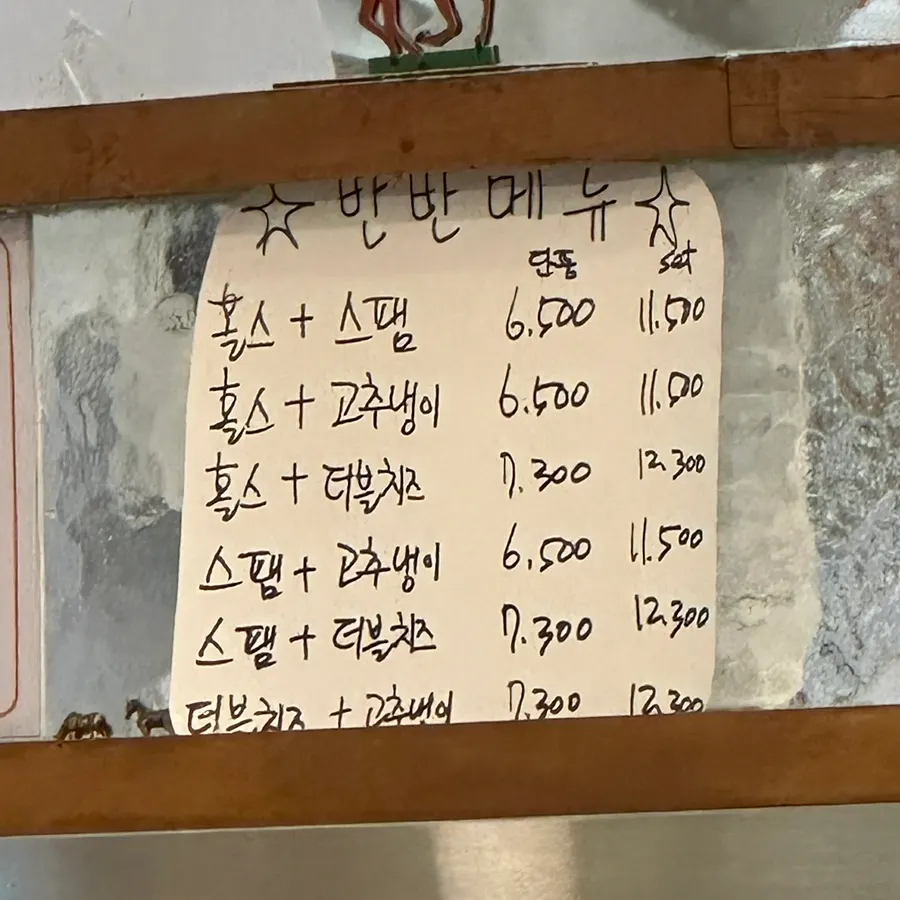 ☆ 반반 메뉴 ☆
단품 set
홀스 + 스팸 6.500 11.500
홀스 + 고추냉이 6.500 11.500
홀스 + 더블치즈 7.300 12.300
스팸 + 고추냉이 6.500 11.500
스팸 + 더블치즈 7.300 12.300
더블치즈 + 고추냉이 7.300 12.300